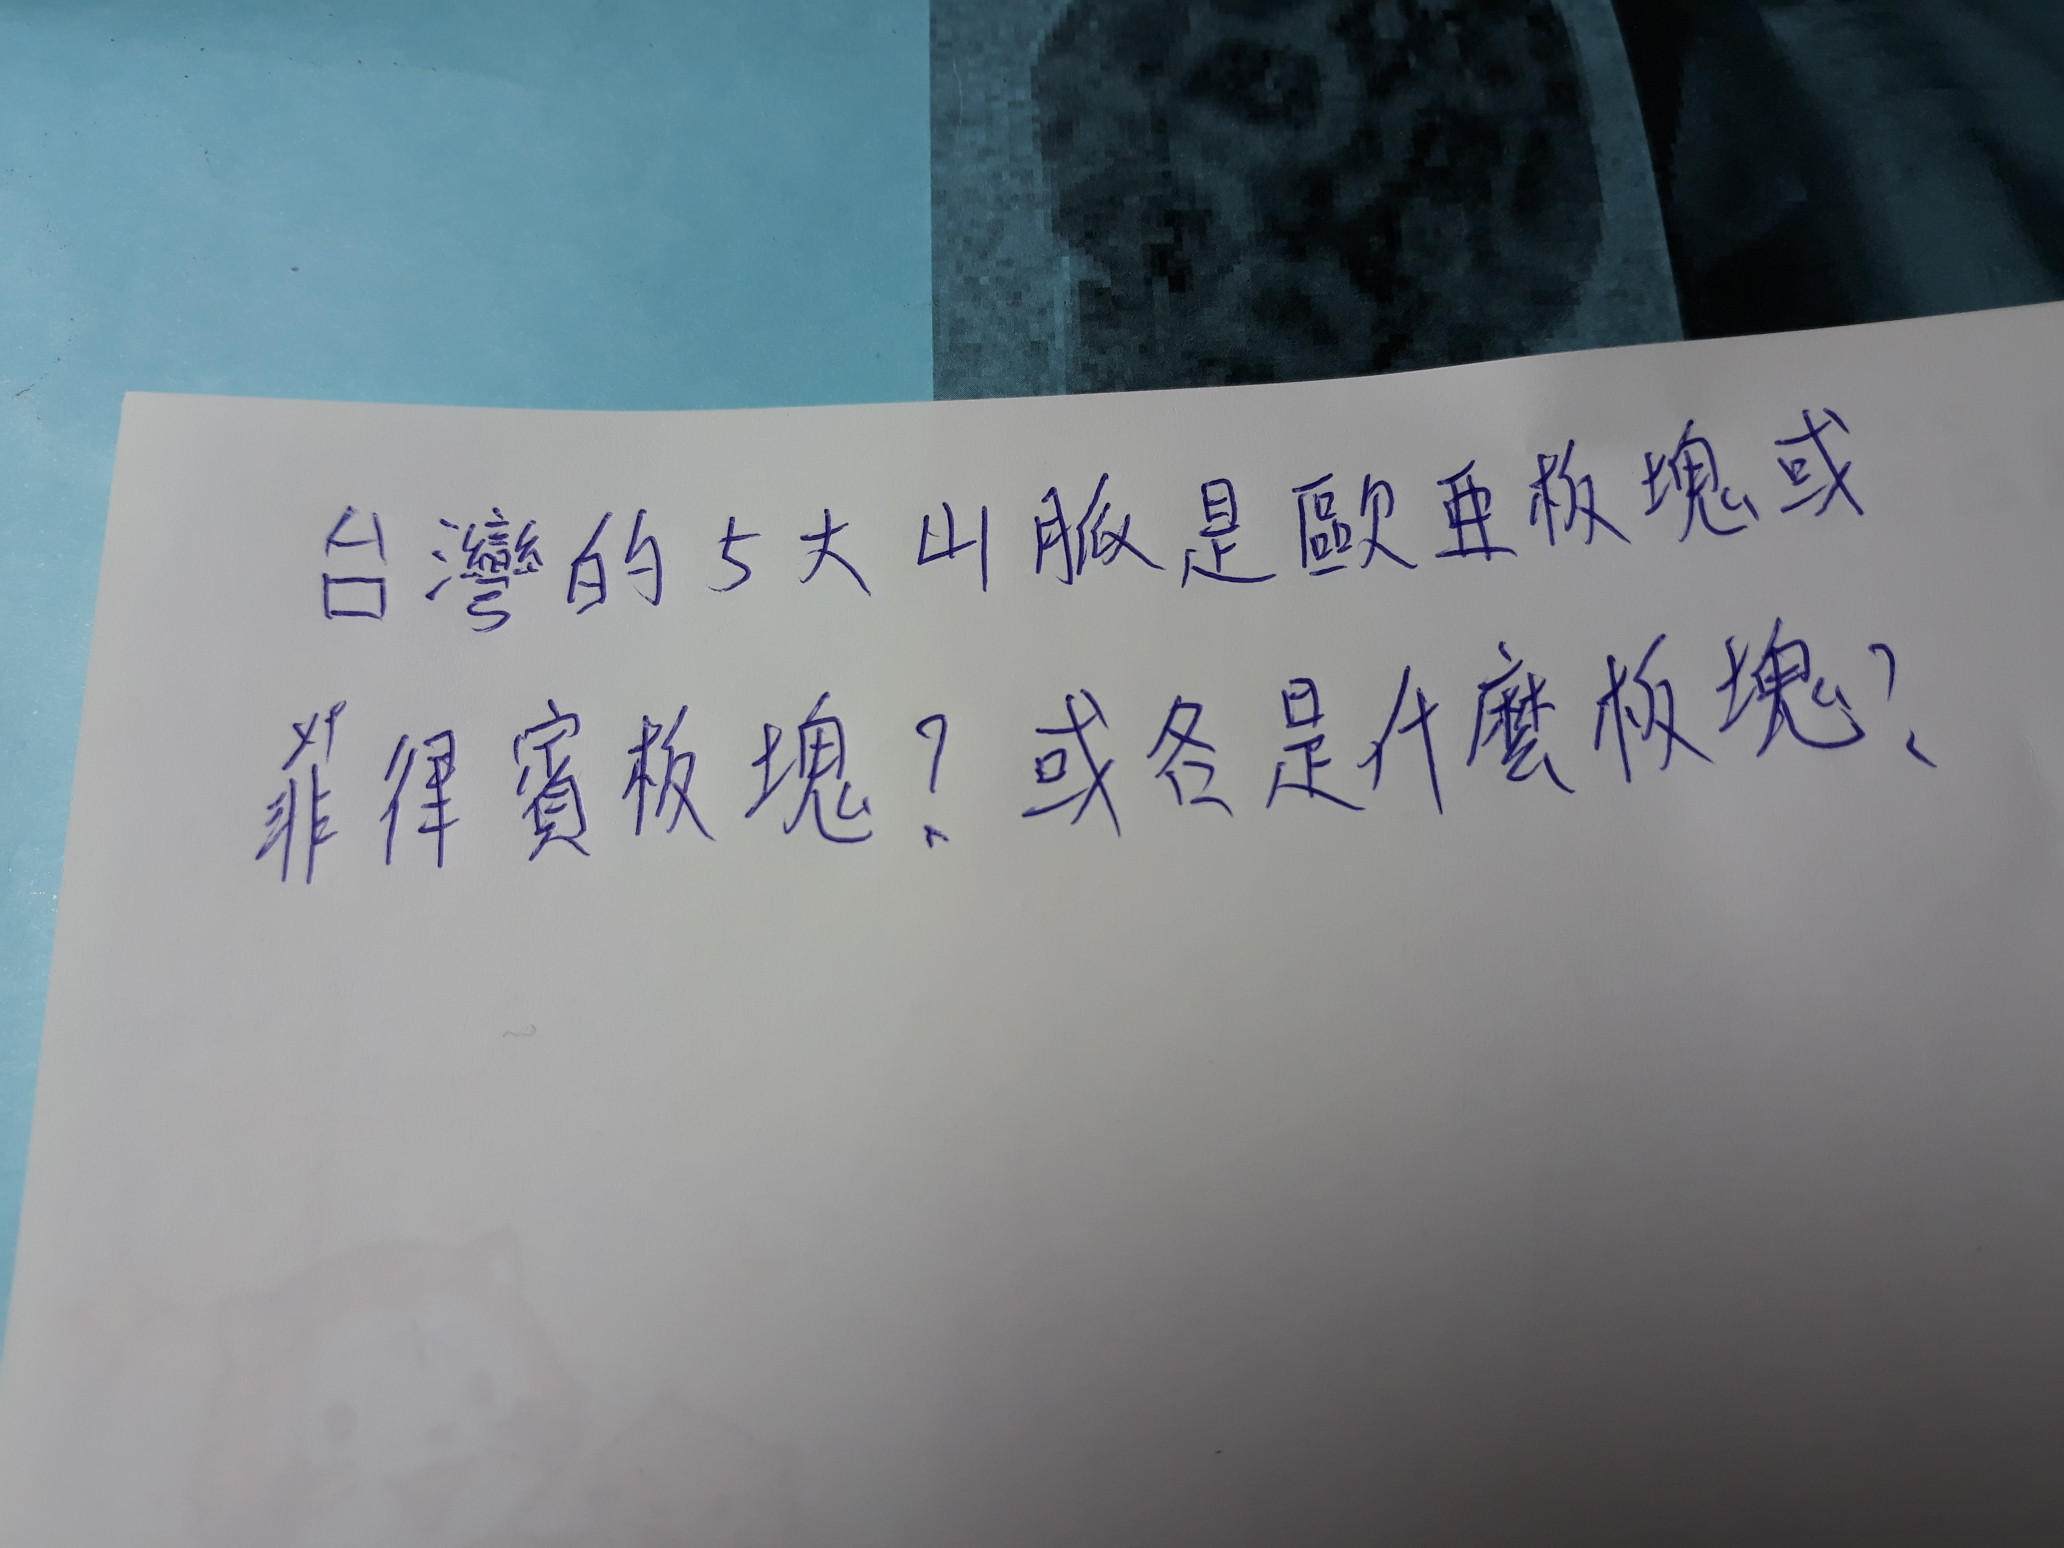 台灣的5大山脈是歐亞板塊或
菲律賓板塊？或各是什麼板塊？